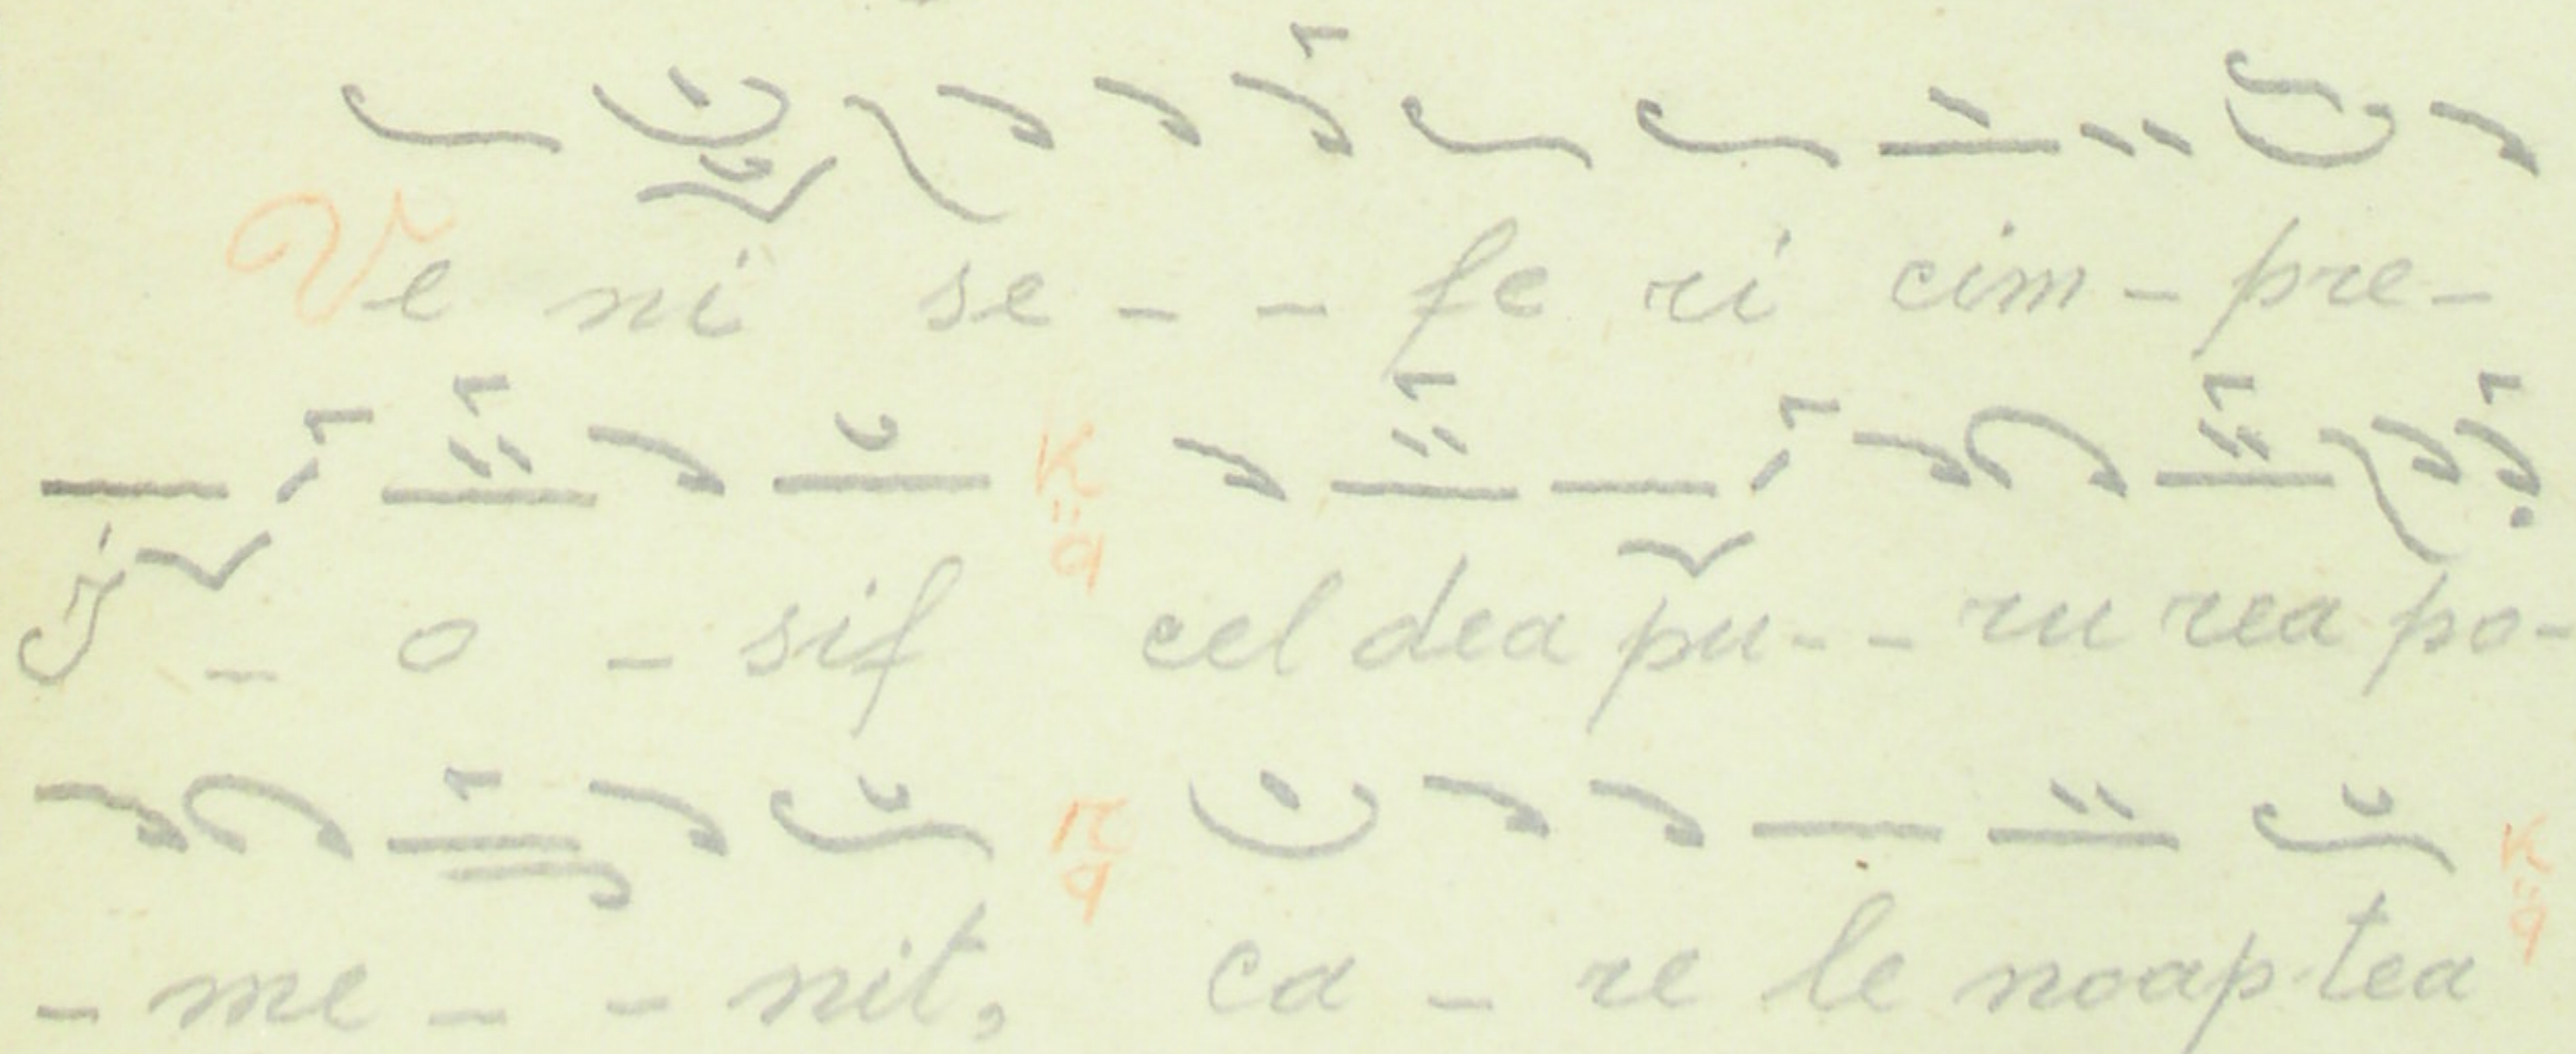 Ve ni se - - fe ri cim - pre -
J - o - sif cel dea pu - - ru rea po -
- me - - nit, ca - re le noap-tea